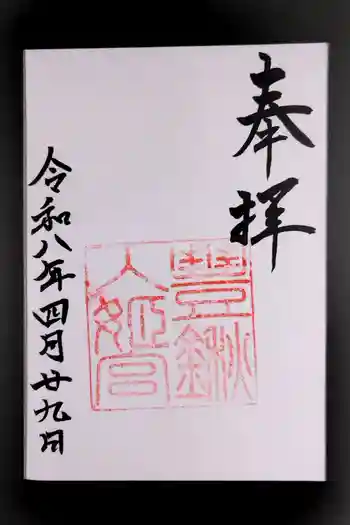 奉拝
豊鍬
入姫宮
令和八年四月廿九日